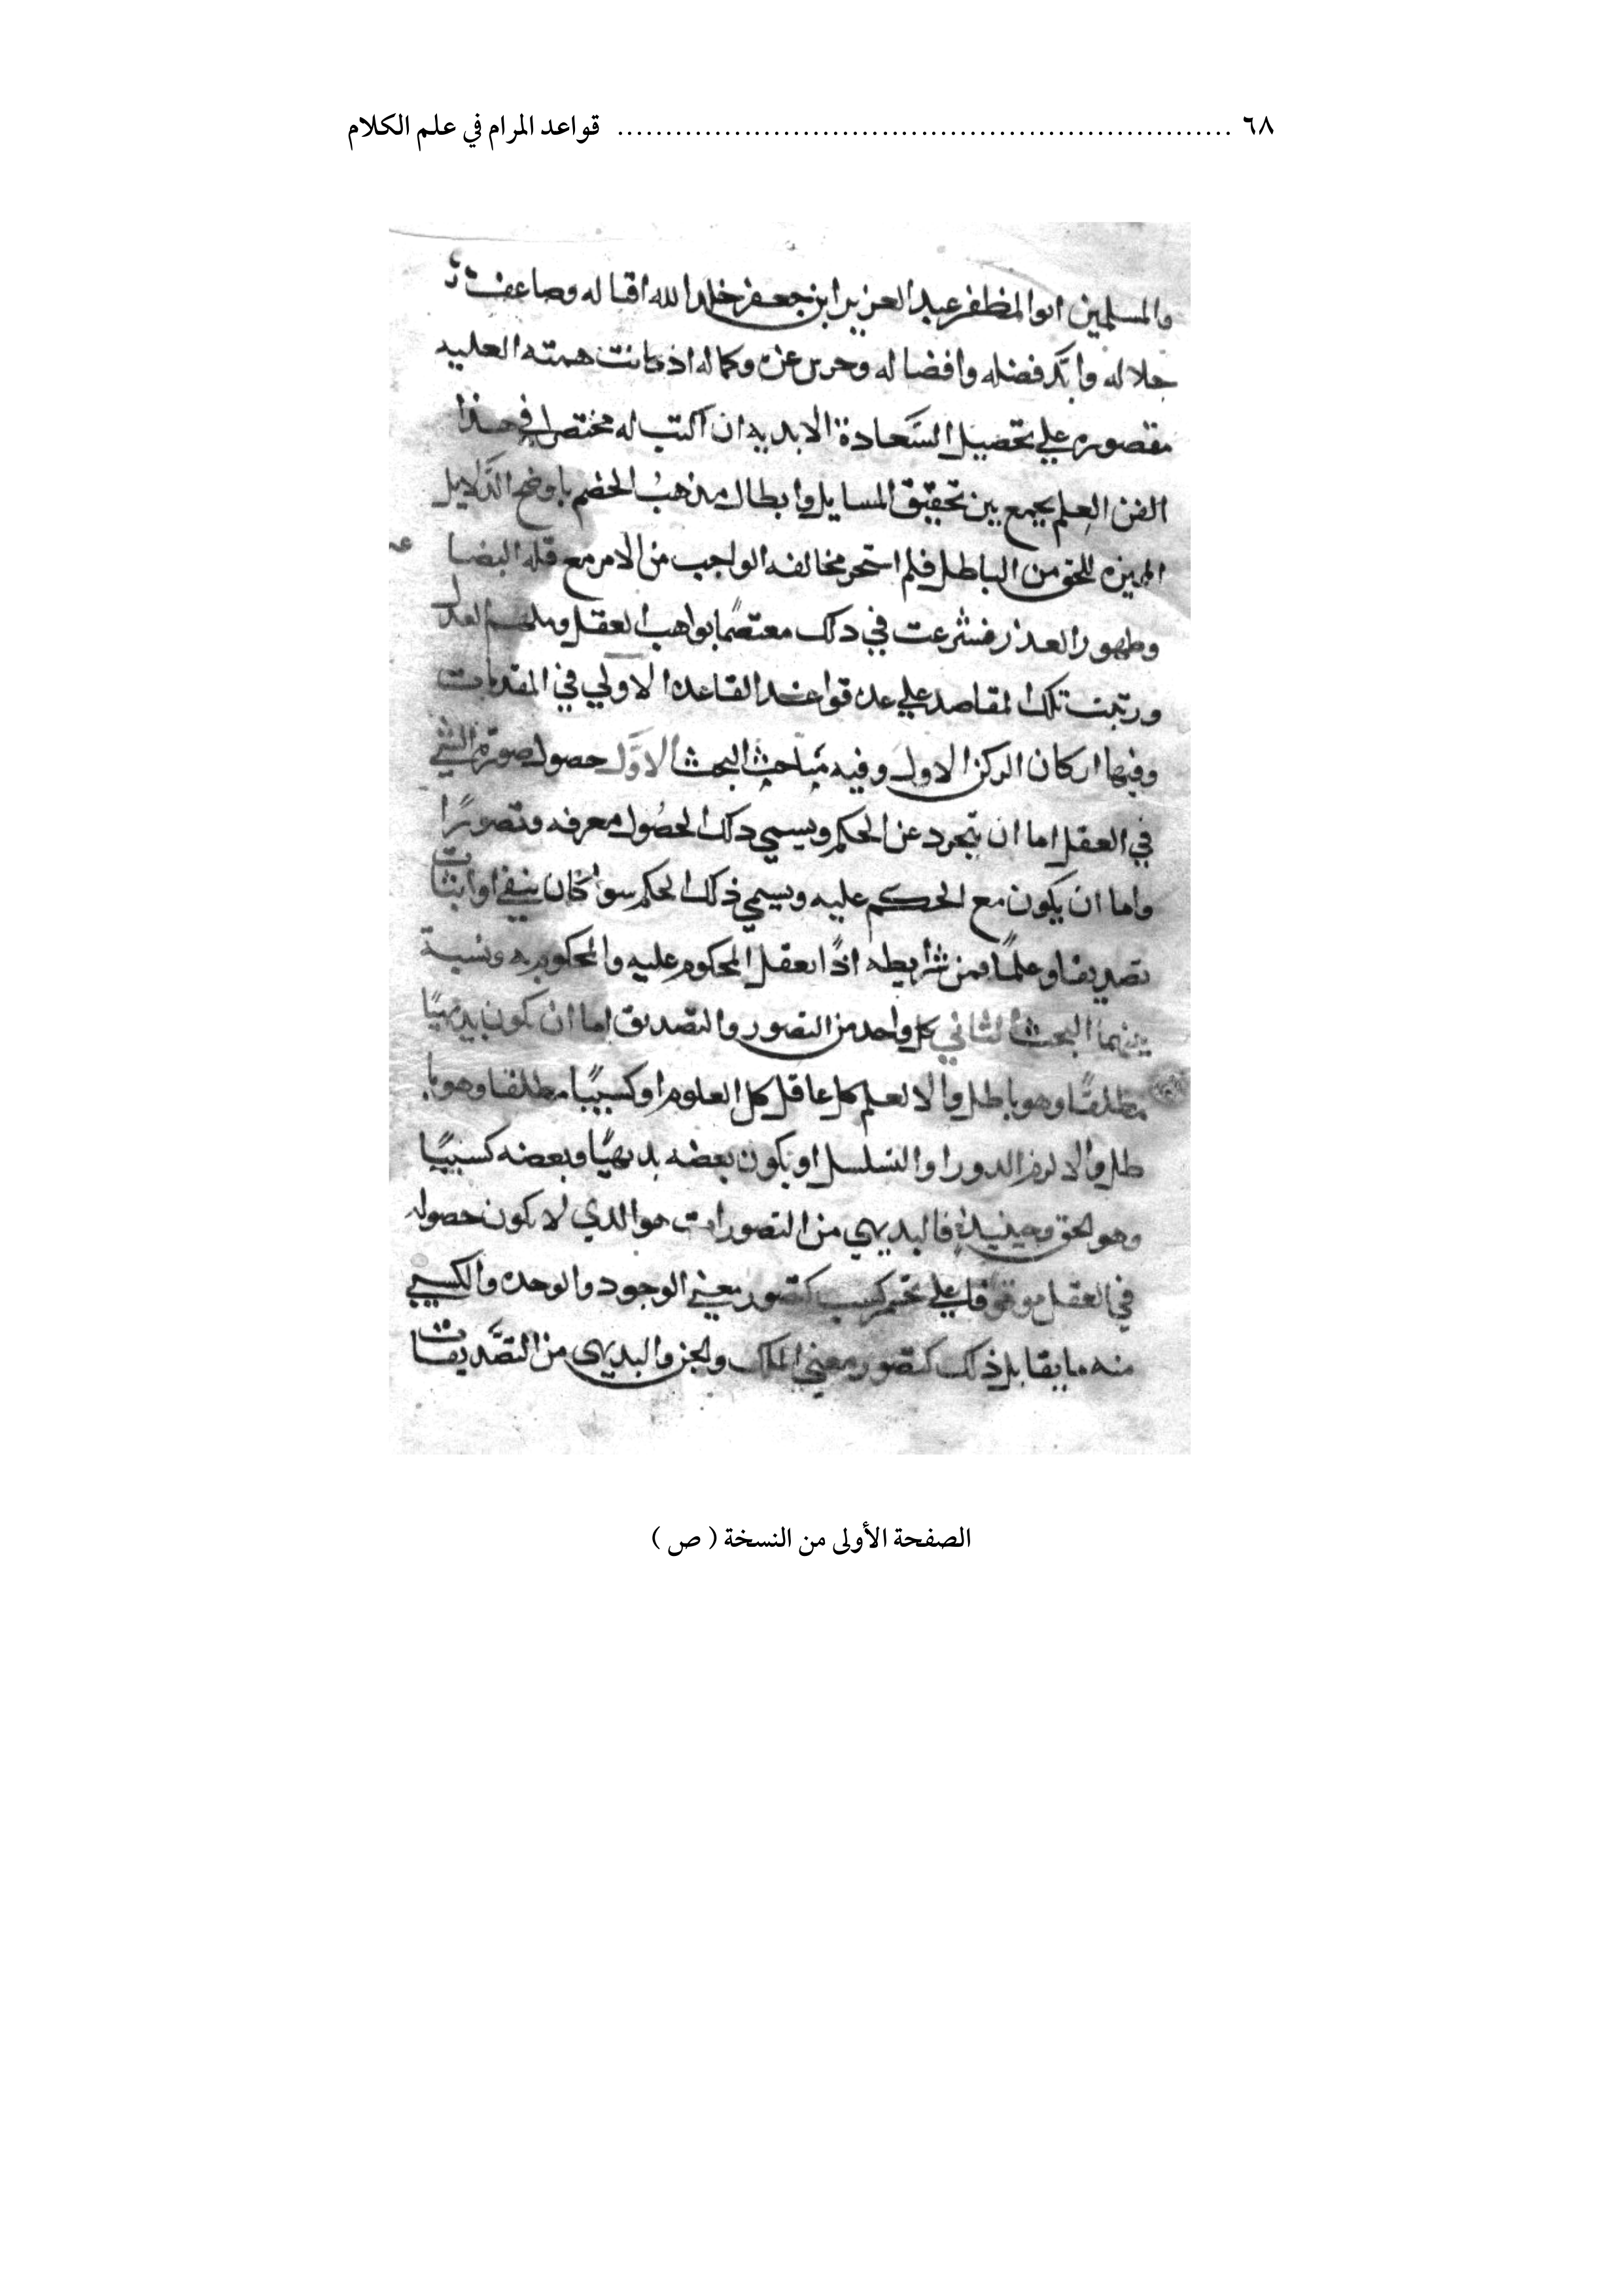 ٦٨ ................................................................ قواعد المرام في علم الكلام
والمسلمين ابو المظفر عبد العزيز ابن جعفر خلد الله اقباله وضاعف
جلاله وابد فضله وافضاله وحرس عزه وكماله اذ كانت همته العليه
مقصوره على تحصيل السَّعادة الابديه ان اكتب له مختصرا في هذا
الفن العلم يجمع بين تحقيق المسايل وابطال مذهب الخصم باوضح الدَّلايل
المميزه للحق من الباطل فلم استحر مخالفه الواجب من الامر مع قله البضا عه
وظهور العذر فشرعت في ذلك معتصمًا بواهب العقل وملهم العدل
ورتبت تلك المقاصد علي عده قواعد القاعده الاولي في المقدمات
وفيها اركان الركن الاول وفيه مباحث البحث الاوّل حصول صورة الشي
في العقل اما ان يتجرد عن الحكم ويسمي ذلك الحصُول معرفه وتصورًا
واما ان يكون مع الحكم عليه ويسمي ذلك الحكم سوا كان بنفي او اثبات
تصديقا وعلمًا فمن شرايطه اذًا تعقل المحكوم عليه والمحكوم به ونسبة
بينهما البحث الثاني كل واحد من التصور والتصديق اما ان يكون بديهيًا
مطلقًا وهو باطل والا لعلم كل عاقل كل العلوم او كسبيًا مطلقا وهو با
طل والا لزم الدور او التسلسل او يكون بعضه بديهيًا وبعضه كسبيًا
وهو الحق وحينيذٍ فالبديهي من التصورات هو الذي لا يكون حصوله
في العقل موقوفا علي تجشم كسب كتصور معني الوجود والوحده والكسبي
منه ما يقابل ذلك كتصور معني الملك والجن والبديهي من التصَّديقات
الصفحة الأولى من النسخة ( ص )